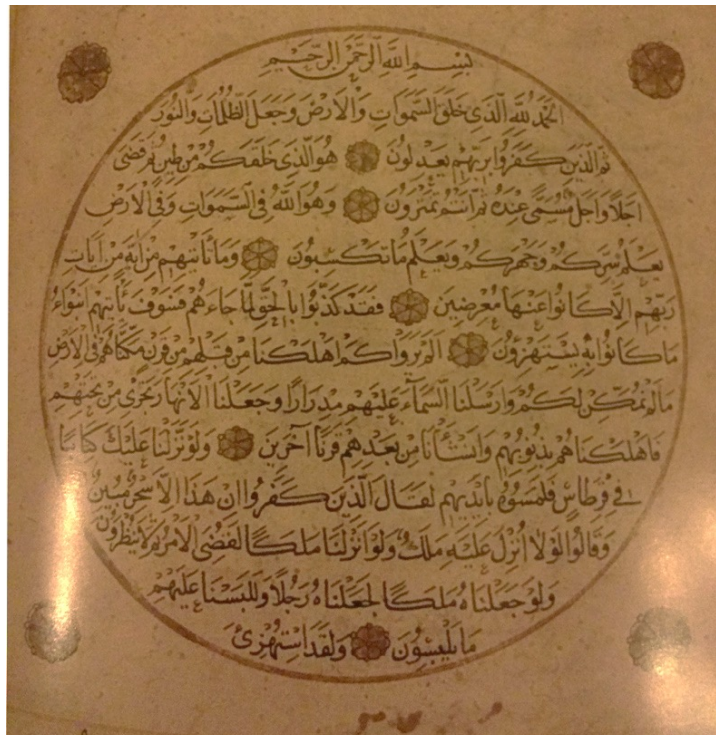 بِسْمِ اللَّهِ الرَّحْمَنِ الرَّحِيمِ
الْحَمْدُ لِلَّهِ الَّذِي خَلَقَ السَّمَوَاتِ وَالْأَرْضَ وَجَعَلَ الظُّلُمَاتِ وَالنُّورَ
ثُمَّ الَّذِينَ كَفَرُوا بِرَبِّهِمْ يَعْدِلُونَ هُوَ الَّذِي خَلَقَكُمْ مِنْ طِينٍ ثُمَّ قَضَى
أَجَلًا وَأَجَلٌ مُسَمًّى عِنْدَهُ ثُمَّ أَنْتُمْ تَمْتَرُونَ وَهُوَ اللَّهُ فِي السَّمَوَاتِ وَفِي الْأَرْضِ
يَعْلَمُ سِرَّكُمْ وَجَهْرَكُمْ وَيَعْلَمُ مَا تَكْسِبُونَ وَمَا تَأْتِيهِمْ مِنْ آيَةٍ مِنْ آيَاتِ
رَبِّهِمْ إِلَّا كَانُوا عَنْهَا مُعْرِضِينَ فَقَدْ كَذَّبُوا بِالْحَقِّ لَمَّا جَاءَهُمْ فَسَوْفَ يَأْتِيهِمْ أَنْبَاءُ
مَا كَانُوا بِهِ يَسْتَهْزِؤُنَ أَلَمْ يَرَوْا كَمْ أَهْلَكْنَا مِنْ قَبْلِهِمْ مِنْ قَرْنٍ مَكَّنَّاهُمْ فِي الْأَرْضِ
مَا لَمْ نُمَكِّنْ لَكُمْ وَأَرْسَلْنَا السَّمَاءَ عَلَيْهِمْ مِدْرَارًا وَجَعَلْنَا الْأَنْهَارَ تَجْرِي مِنْ تَحْتِهِمْ
فَأَهْلَكْنَاهُمْ بِذُنُوبِهِمْ وَأَنْشَأْنَا مِنْ بَعْدِهِمْ قَرْنًا آخَرِينَ وَلَوْ نَزَّلْنَا عَلَيْكَ كِتَابًا
فِي قِرْطَاسٍ فَلَمَسُوهُ بِأَيْدِيهِمْ لَقَالَ الَّذِينَ كَفَرُوا إِنْ هَذَا إِلَّا سِحْرٌ مُبِينٌ
وَقَالُوا لَوْلَا أُنْزِلَ عَلَيْهِ مَلَكٌ وَلَوْ أَنْزَلْنَا مَلَكًا لَقُضِيَ الْأَمْرُ ثُمَّ لَا يُنْظَرُونَ
وَلَوْ جَعَلْنَاهُ مَلَكًا لَجَعَلْنَاهُ رَجُلًا وَلَلَبَسْنَا عَلَيْهِمْ
مَا يَلْبِسُونَ وَلَقَدِ اسْتُهْزِئَ